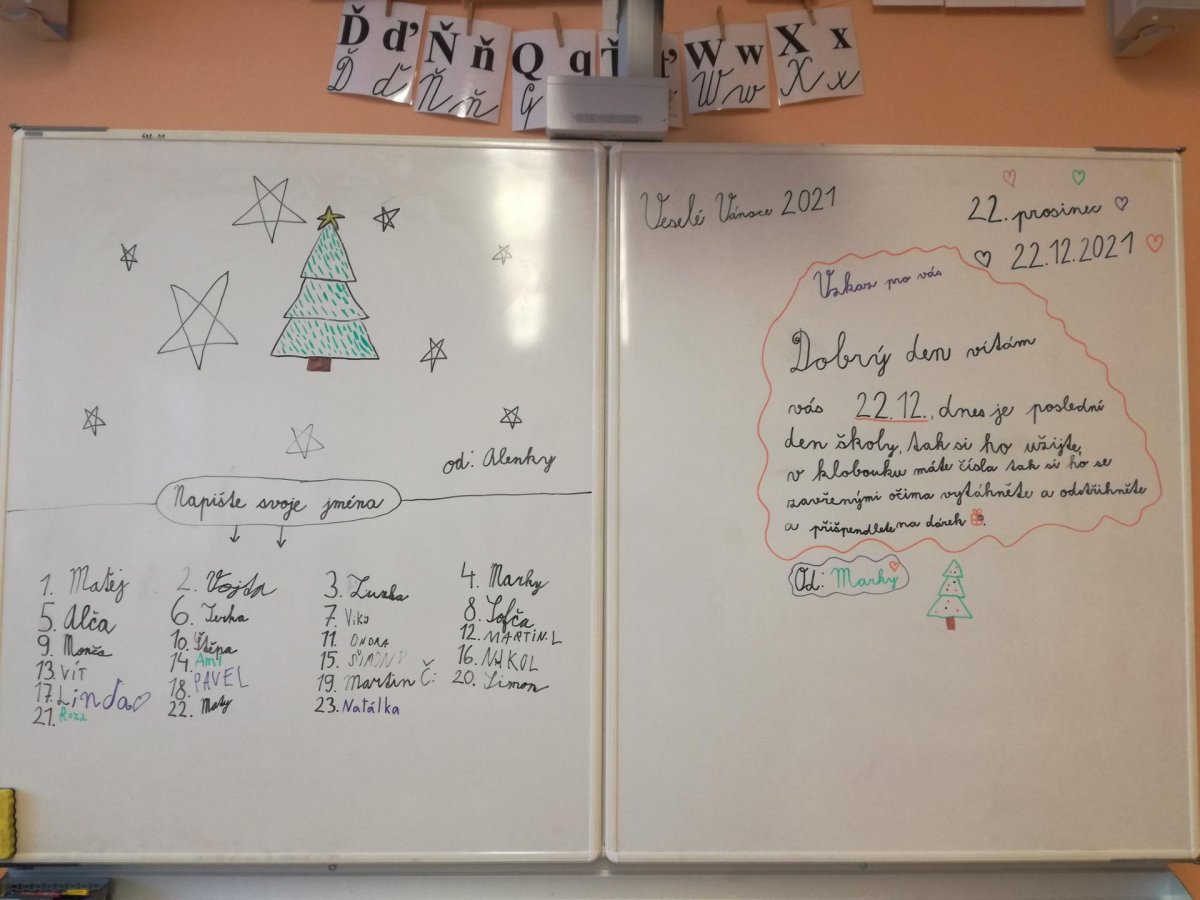 Ď ď Ň ň Q q Ť ť W w X x
Ď ď Ň ň Q W w X x
od: Alenky
Napište svoje jména
1. Matěj 2. Vojta 3. Zuzka 4. Marky
5. Alča 6. Terka 7. Viky 8. Sofča
9. Monža 10. Štěpa 11. ONDRA 12. MARTIN.L
13. VÍT 14. Ami 15. 16. NIKOL
17. Linda 18. PAVEL 19. Martin Č. 20. Simon
21. Rozz 22. Maty 23. Natálka
Veselé Vánoce 2021
22. prosinec
22.12.2021
Vzkaz pro vás
Dobrý den vítám
vás 22.12., dnes je poslední
den školy, tak si ho užijte,
v klobouku máte čísla tak si ho se
zavřenými očima vytáhněte a odstřihněte
a přišpendlete na dárek
Od: Marky